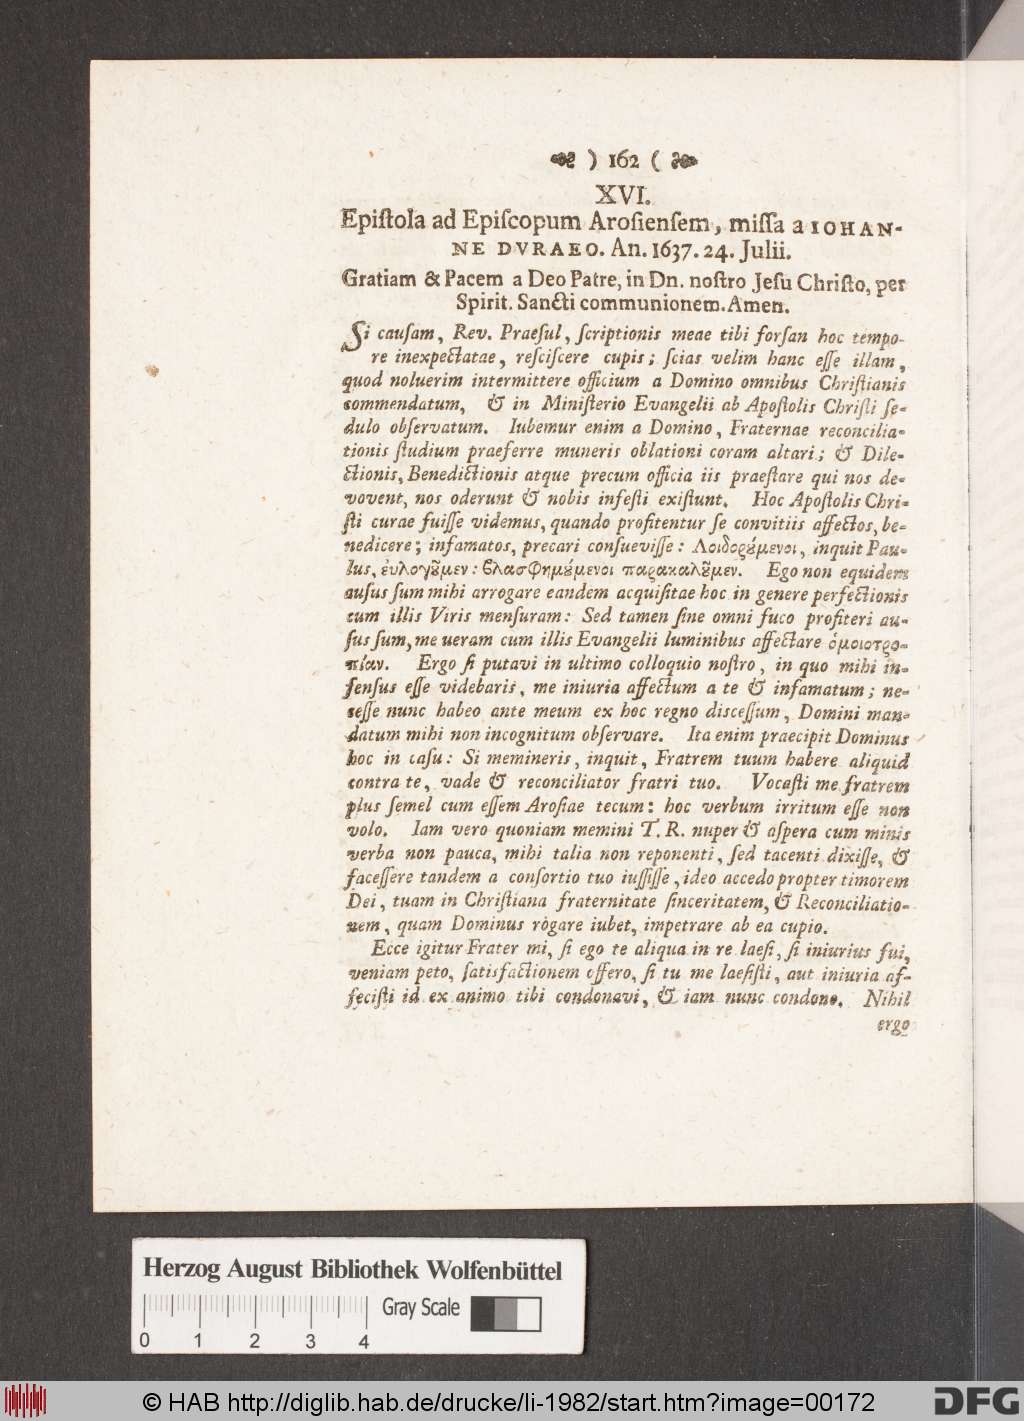 ) 162 (
XVI.
Epiſtola ad Epiſcopum Aroſienſem, miſſa a IOHAN-
NE DVRAEO. An. 1637. 24. Julii.
Gratiam & Pacem a Deo Patre, in Dn. noſtro Jeſu Chriſto, per
Spirit. Sancti communionem. Amen.
Si cauſam, Rev. Praeſul, ſcriptionis meae tibi forſan hoc tempo-
re inexpectatae, reſciſcere cupis; ſcias velim hanc eſſe illam,
quod noluerim intermittere officium a Domino omnibus Chriſtianis
commendatum, & in Miniſterio Evangelii ab Apoſtolis Chriſti ſe-
dulo obſervatum. Iubemur enim a Domino, Fraternae reconcilia-
tionis ſtudium praeferre muneris oblationi coram altari; & Dile-
ctionis, Benedictionis atque precum officia iis praeſtare qui nos de-
vovent, nos oderunt & nobis infeſti exiſtunt. Hoc Apoſtolis Chri-
ſti curae fuiſſe videmus, quando profitentur ſe convitiis affectos, be-
nedicere; infamatos, precari conſueviſſe: Λοιδορȣ́μενοι, inquit Pau-
lus, ἐυλογȣ͂μεν: βλασφημȣ́μενοι παρακαλȣ͂μεν. Ego non equidem
auſus ſum mihi arrogare eandem acquiſitae hoc in genere perfectionis
cum illis Viris menſuram: Sed tamen ſine omni fuco profiteri au-
ſus ſum, me ueram cum illis Evangelii luminibus affectare ὁμοιοτρο-
πίαν. Ergo ſi putavi in ultimo colloquio noſtro, in quo mihi in-
fenſus eſſe videbaris, me iniuria affectum a te & infamatum; ne-
ceſſe nunc habeo ante meum ex hoc regno diſceſſum, Domini man-
datum mihi non incognitum obſervare. Ita enim praecipit Dominus
hoc in caſu: Si memineris, inquit, Fratrem tuum habere aliquid
contra te, vade & reconciliator fratri tuo. Vocaſti me fratrem
plus ſemel cum eſſem Aroſiae tecum: hoc verbum irritum eſſe non
volo. Iam vero quoniam memini T. R. nuper & aſpera cum minis
verba non pauca, mihi talia non reponenti, ſed tacenti dixiſſe, &
faceſſere tandem a conſortio tuo iuſſiſſe, ideo accedo propter timorem
Dei, tuam in Chriſtiana fraternitate ſinceritatem, & Reconciliatio-
nem, quam Dominus rogare iubet, impetrare ab ea cupio.
Ecce igitur Frater mi, ſi ego te aliqua in re laeſi, ſi iniurius fui,
veniam peto, ſatisfactionem offero, ſi tu me laeſiſti, aut iniuria af-
feciſti id ex animo tibi condonavi, & iam nunc condono. Nihil
ergo
Herzog August Bibliothek Wolfenbüttel
Gray Scale
0 1 2 3 4
© HAB http://diglib.hab.de/drucke/li-1982/start.htm?image=00172
DFG